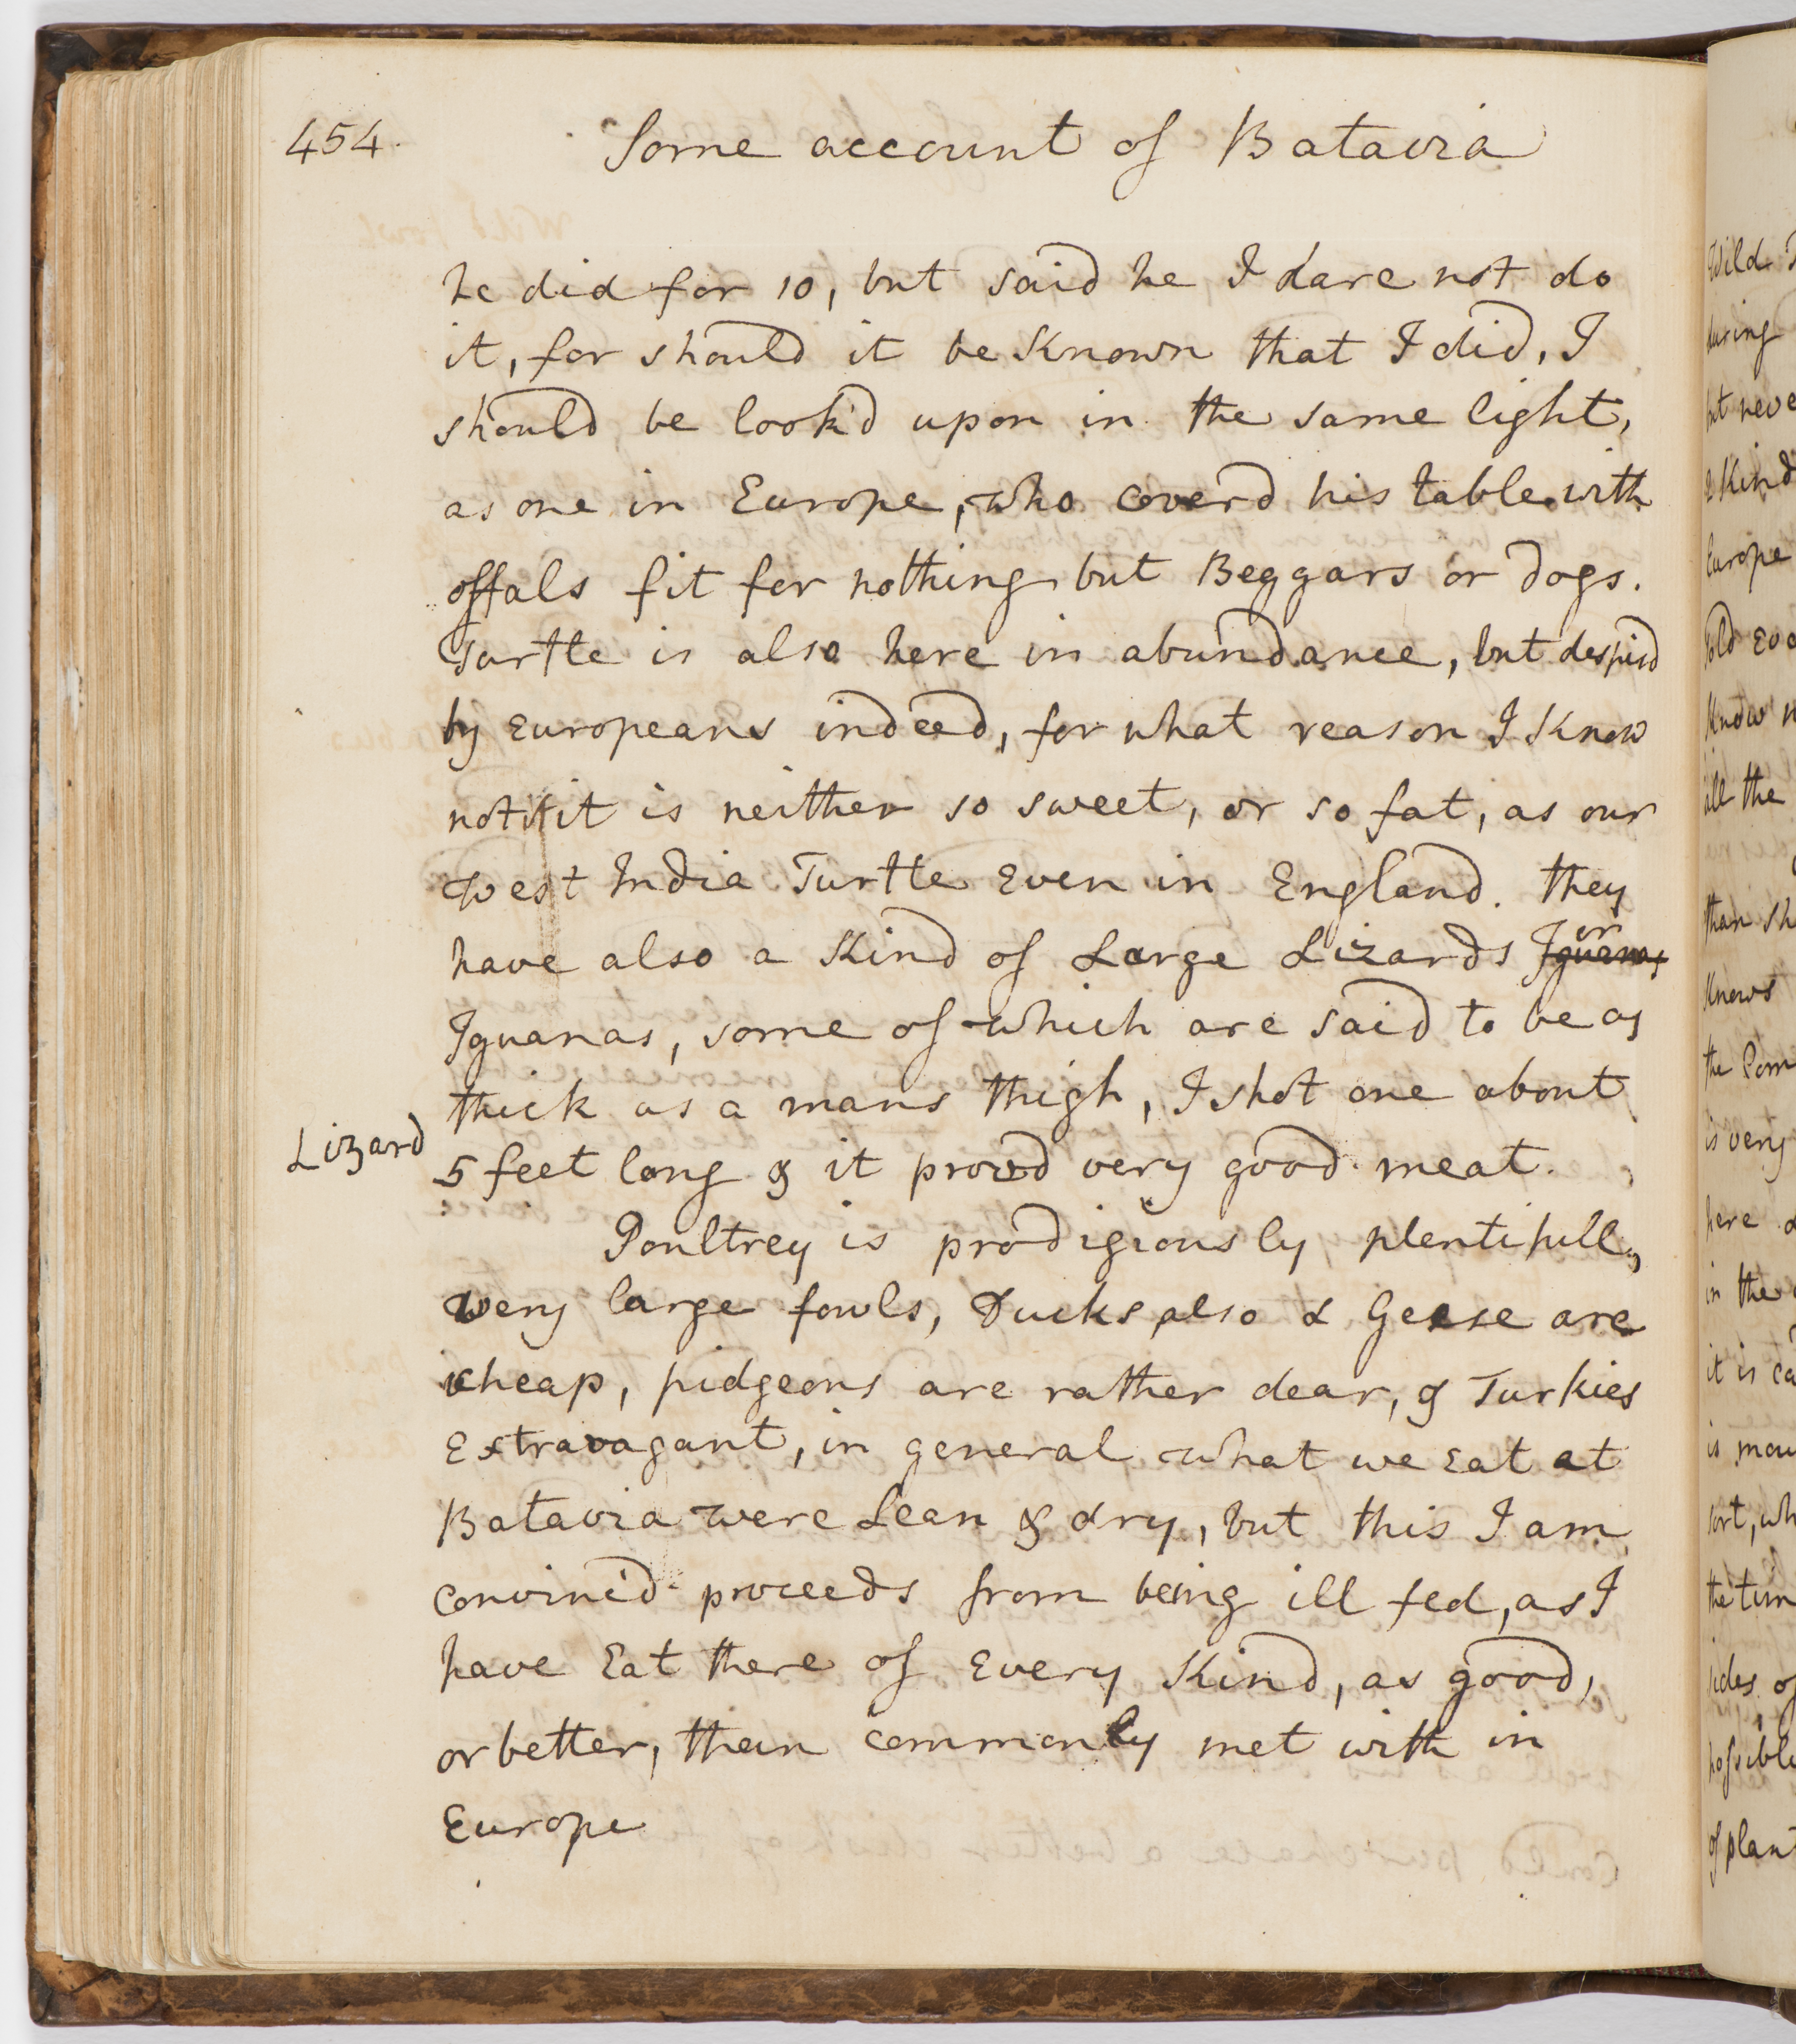 454.
Some account of Batavia
he did for 10, but said he I dare not do
it, for should it be Known that I did, I
should be look'd upon in the same light,
as one in Europe, who coverd his table with
offals fit for nothing but Beggars or dogs.
Turtle is also here in abundance, but despisd
by Europeans indeed, for what reason I Know
not it is neither so sweet, or so fat, as our
West India Turtle Even in England. they
have also a Kind of Large Lizards or Iguanas
Iguanas, some of which are said to be as
thick as a mans thigh, I shot one about
Lizard
5 feet long & it proved very good meat.
Poultrey is prodigiously plentifull,
very large fowls, Ducks also & Geese are
cheap, pidgeons are rather dear, & Turkies
Extravagant, in general what we Eat at
Batavia were Lean & dry, but this I am
convinc'd proceeds from being ill fed, as I
have Eat there of Every Kind, as good,
or better, than commonly met with in
Europe
Wild
during
2 Kind
Europe
told
Know
all the
than
Knows
the
is very
here
in the
it is
is
sort,
the
sides of
possible
of plant